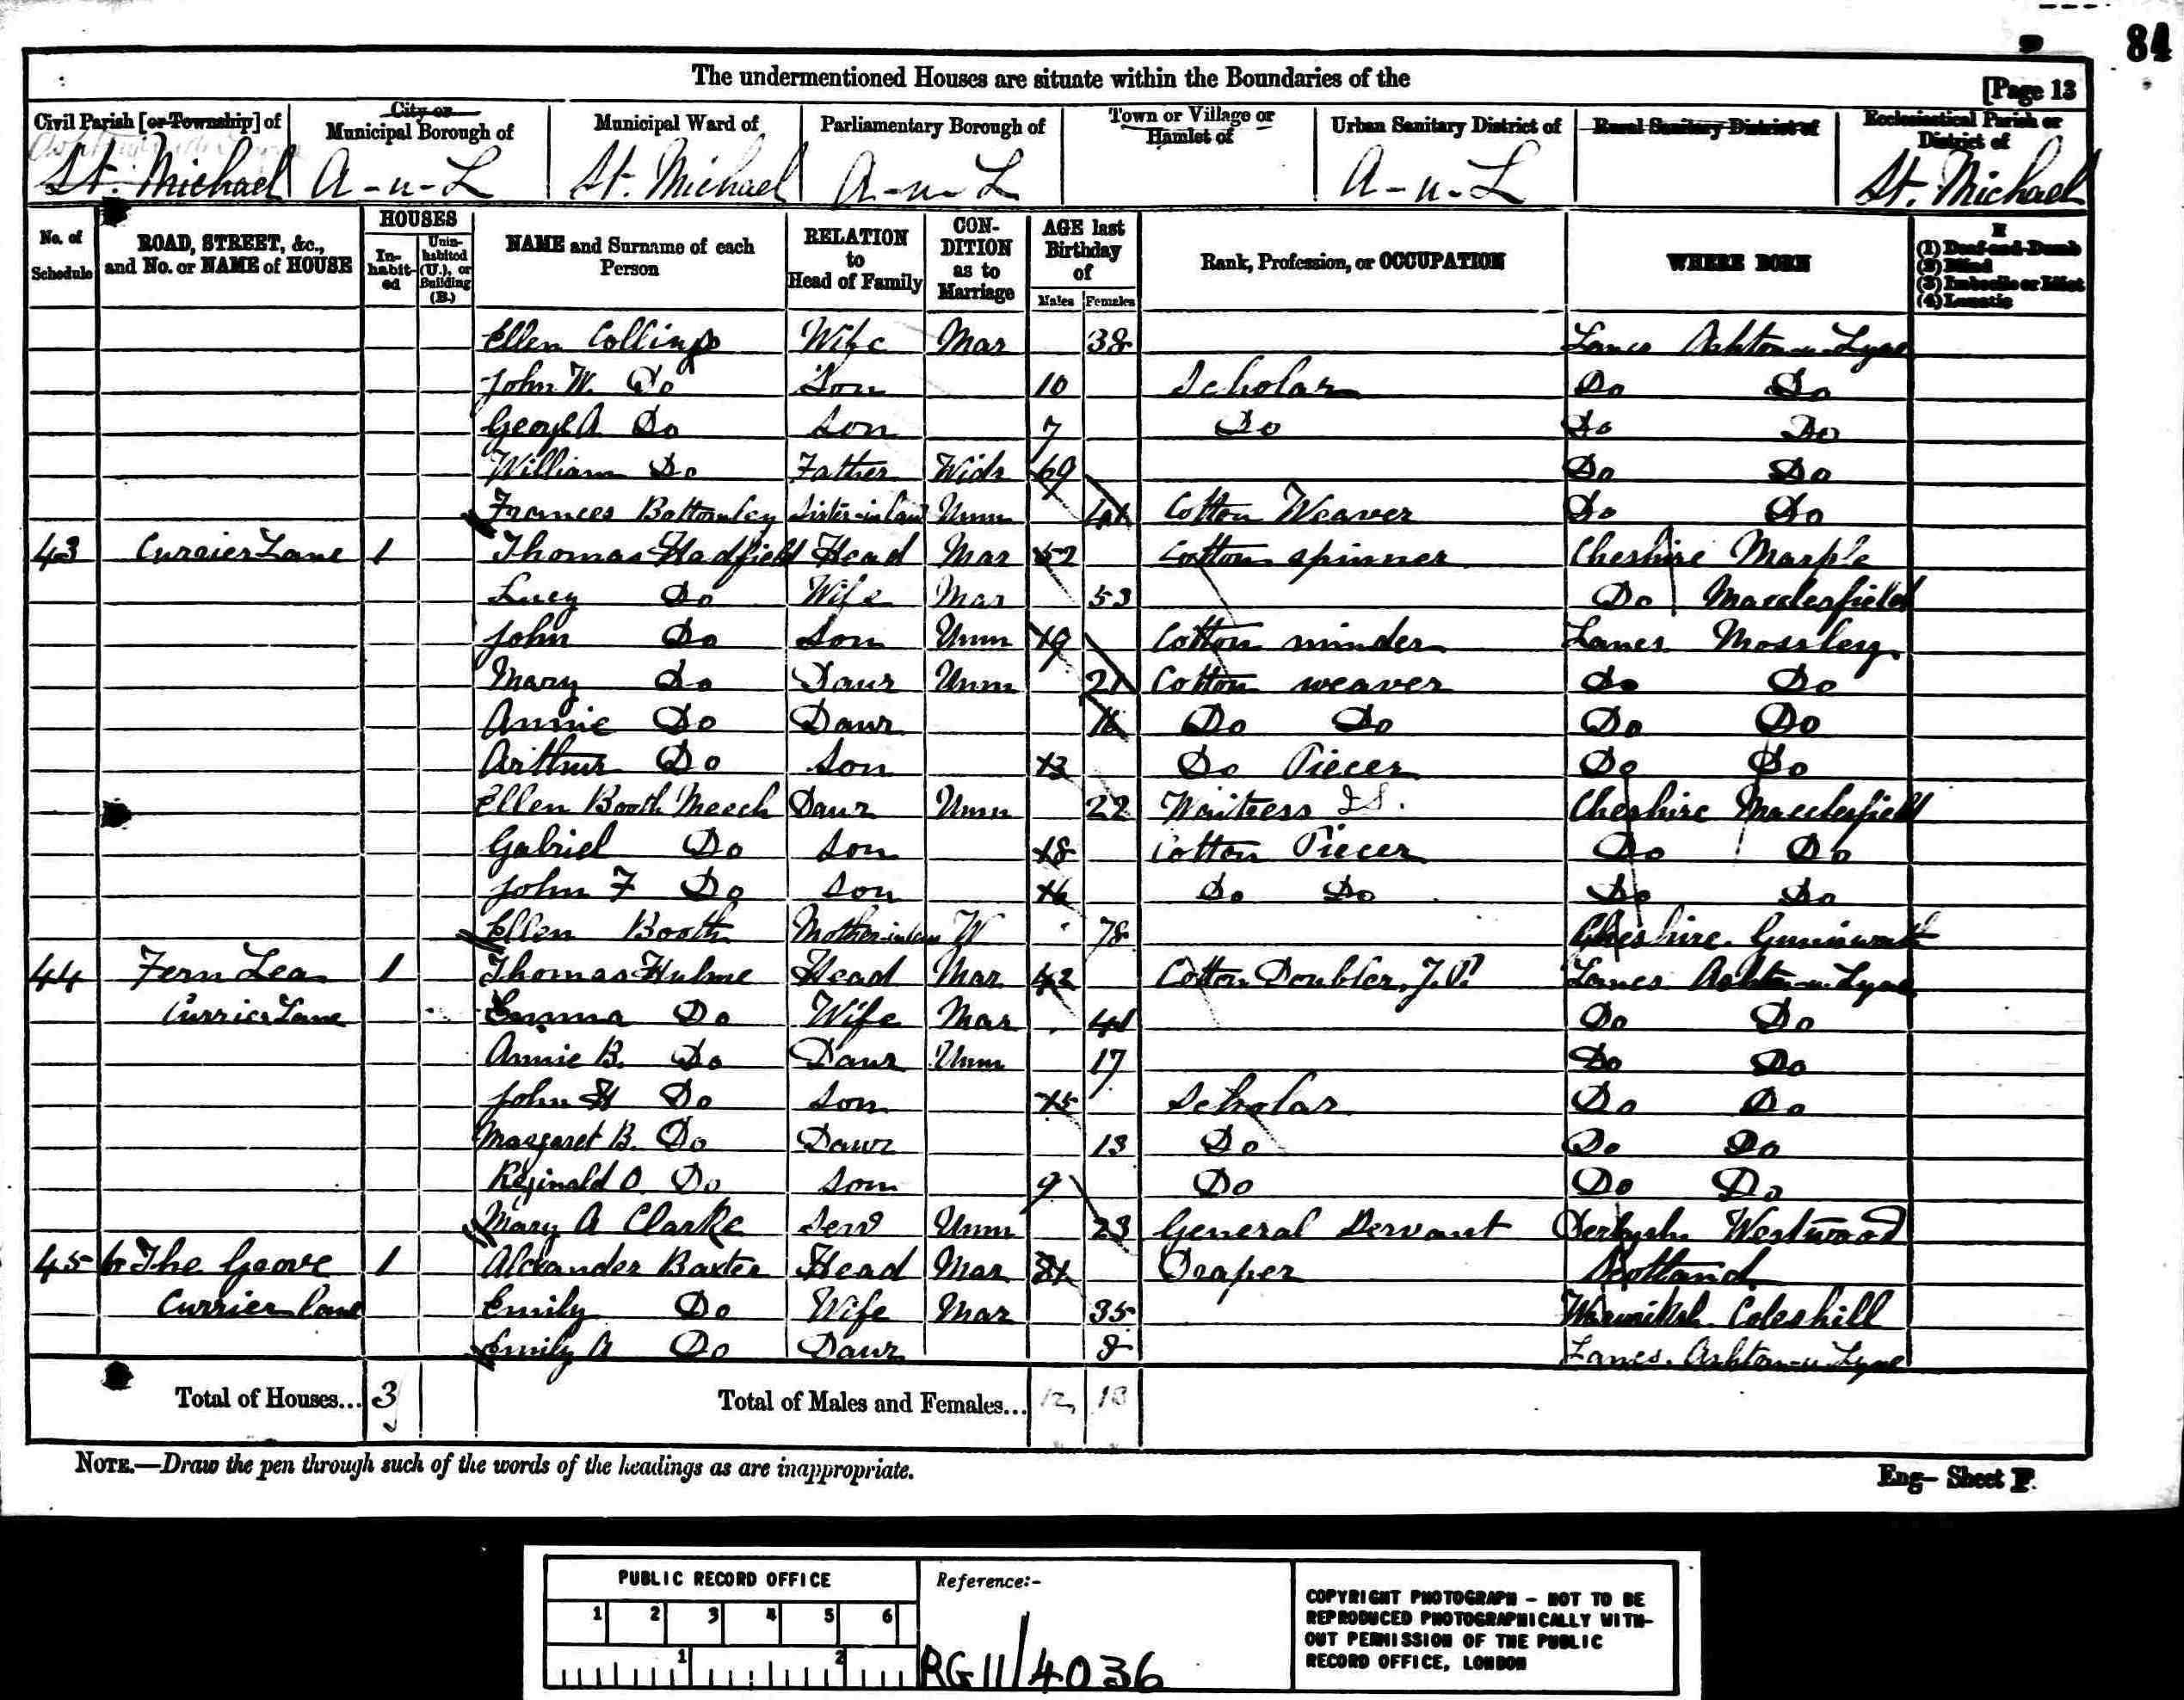 84
The undermentioned Houses are situate within the Boundaries of the
[Page 13
Civil Parish [or Township] of
City or Municipal Borough of
Municipal Ward of
Parliamentary Borough of
Town or Village or Hamlet of
Urban Sanitary District of
Rural Sanitary District of
Ecclesiastical Parish or District of
St. Michael A-u-L St. Michael A-u-L A-u-L St. Michael
No. of Schedule
ROAD, STREET, &c., and No. or NAME of HOUSE
HOUSES
In-habit-ed
Unin-habited (U.), or Building (B.)
NAME and Surname of each Person
RELATION to Head of Family
CON-DITION as to Marriage
AGE last Birthday of
Males Females
Rank, Profession, or OCCUPATION
WHERE BORN
If
(1) Deaf-and-Dumb
(2) Blind
(3) Imbecile or Idiot
(4) Lunatic
Ellen Collings Wife Mar 38 Lancs Ashton-u-Lyne
John W. Do Son 10 Scholar Do Do
George A Do Son 7 Do Do Do
William Do Father Widr 69 Do Do
Frances Bottomley Sister-in-law Unm Cotton Weaver Do Do
43 Currier Lane 1 Thomas Hadfield Head Mar 52 Cotton spinner Cheshire Marple
Lucy Do Wife Mar 53 Do Macclesfield
John Do Son Unm 19 Cotton minder Lancs Mossley
Mary Do Daur Unm 21 Cotton weaver Do Do
Annie Do Daur 16 Do Do Do Do
Arthur Do Son 13 Do Piecer Do Do
Ellen Booth Meech Daur Unm 22 Waitress Cheshire Macclesfield
Gabriel Do Son 18 Cotton Piecer Do Do
John F Do Son 16 Do Do Do Do
Ellen Booth Mother-in-law W 78 Cheshire
44 Fern Lea 1 Thomas Hulme Head Mar 42 Cotton Doubler, J.P. Lancs Ashton-u-Lyne
Currier Lane Emma Do Wife Mar 41 Do Do
Annie B. Do Daur Unm 17 Do Do
John H Do Son 15 Scholar Do Do
Margaret B. Do Daur 13 Do Do Do
Reginald O. Do Son 9 Do Do Do
Mary A Clarke Serv Unm 23 General Servant Derbysh. Westwood
45 The Grove 1 Alexander Baxter Head Mar Draper Scotland
Currier lane Emily Do Wife Mar 35 Warwicksh. Coleshill
Emily A Do Daur 8 Lancs. Ashton-u-Lyne
Total of Houses... 3
Total of Males and Females... 12 13
NOTE.—Draw the pen through such of the words of the headings as are inappropriate.
Eng- Sheet F.
PUBLIC RECORD OFFICE
1 2 3 4 5 6
1 2
Reference:-
RG11/4036
COPYRIGHT PHOTOGRAPH - NOT TO BE
REPRODUCED PHOTOGRAPHICALLY WITH-
OUT PERMISSION OF THE PUBLIC
RECORD OFFICE, LONDON